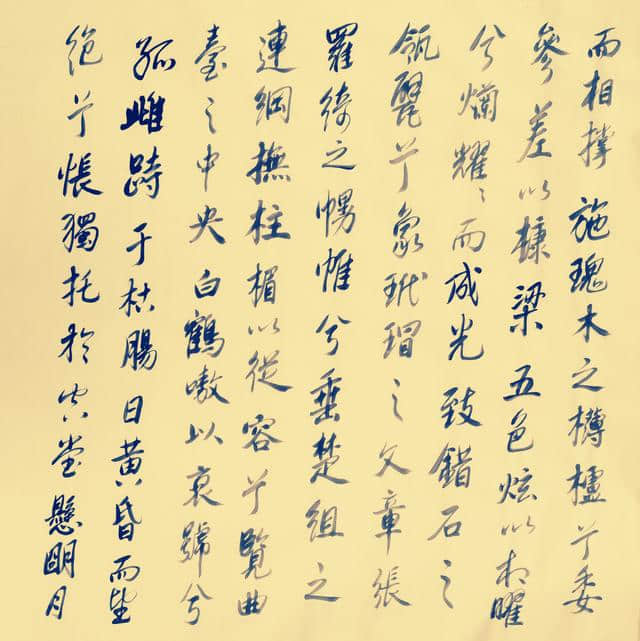 而相撑施瑰木之欂櫨兮委
參差以槺梁五色炫以相曜
兮爛耀〻而成光致錯石之
瓴甓兮象玳瑁之文章張
羅綺之幔帷兮垂楚組之
連綱撫柱楣以從容兮覽曲
臺之中央白鶴噭以哀號兮
孤雌跱于枯腸日黃昏而望
絕兮悵獨托於空堂懸明月